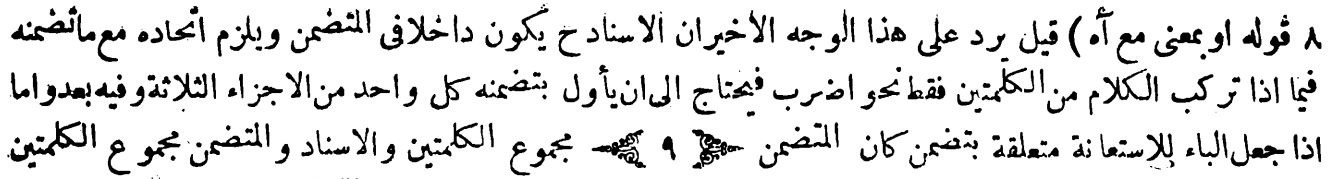 ٨ قوله او بمعنى مع آه ) قيل يرد على هذا الوجه الأخيران الاسناد ح يكون داخلا فى المتضمن ويلزم اتحاده مع ماتضمنه
فيما اذا تركب الكلام من الكلمتين فقط نحو اضرب فيحتاج الى ان يأول بتضمنه كل واحد من الاجزاء الثلاثة وفيه بعد واما
اذا جعل الباء للاستعانة متعلقة بتضمن كان المتضمن ٩ مجموع الكلمتين والاسناد والمتضمن مجموع الكلمتين